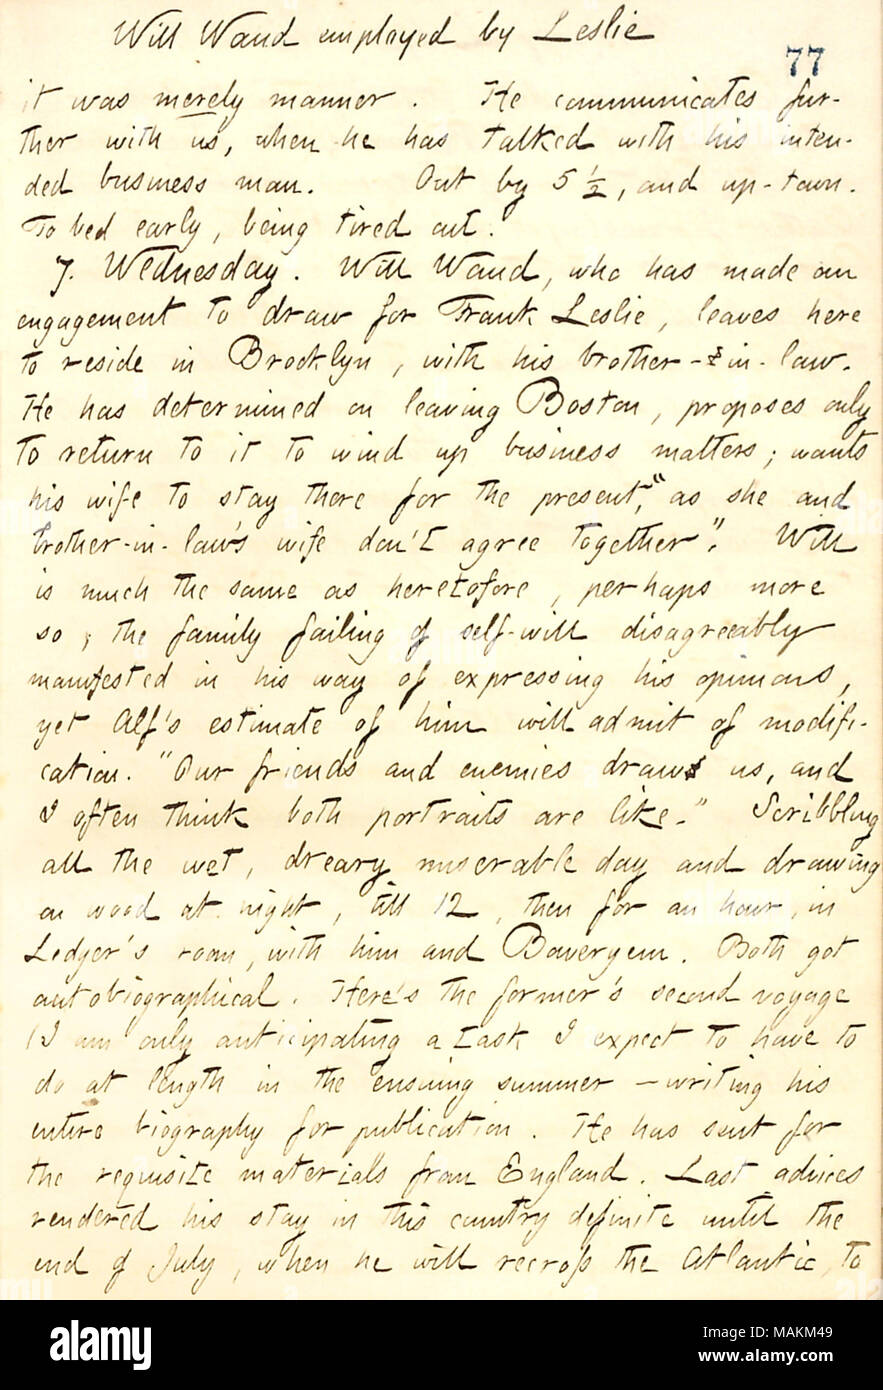 Will Waud employed by Leslie
77
it was merely manner. He communicates fur-
ther with us, when he has talked with his inten-
ded business man. Out by 5 ½, and up-town.
To bed early, being tired out.
7. Wednesday. Will Waud, who has made an
engagement to draw for Frank Leslie, leaves here
to reside in Brooklyn, with his brother-in-law.
He has determined on leaving Boston, proposes only
to return to it to wind up business matters; wants
his wife to stay there for the present, "as she and
brother-in-law's wife don't agree together". Will
is much the same as heretofore, perhaps more
so; the family failing of self-will disagreeably
manifested in his way of expressing his opinions,
yet Alf's estimate of him will admit of modifi-
cation. "Our friends and enemies draw us, and
I often think both portraits are like." Scribbling
all the wet, dreary miserable day and drawing
on wood at night, till 12, then for an hour, in
Ledger's room, with him and Boweryem. Both got
autobiographical. Here's the former's second voyage
(I am only anticipating a task I expect to have to
do at length in the ensuing summer — writing his
entire biography for publication. He has sent for
the requisite materials from England. Last advices
rendered his stay in this country definite until the
end of July, when he will recross the Atlantic, to
alamy
Image ID: MAKM49
www.alamy.com